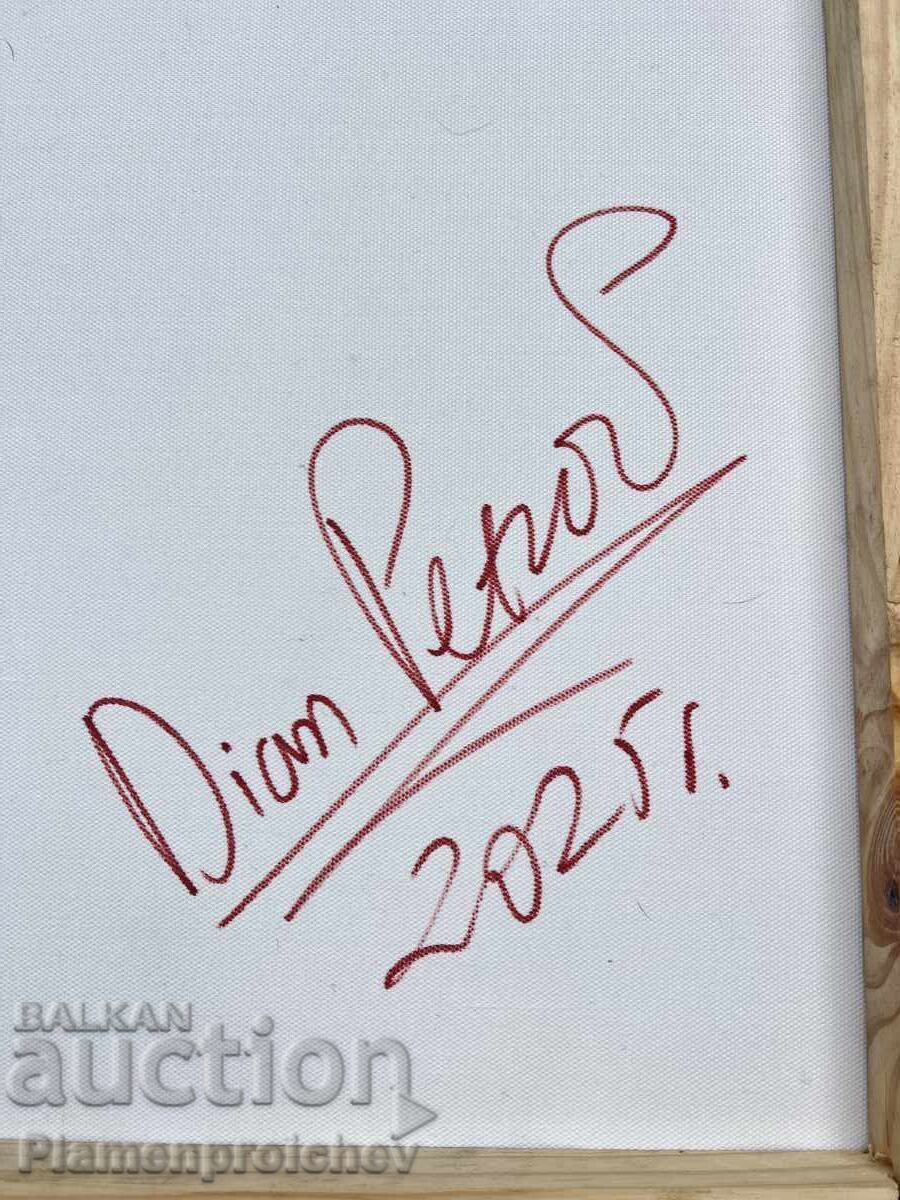 Dian Petrov
2025г.
BALKAN
auction
Plamenprolchev